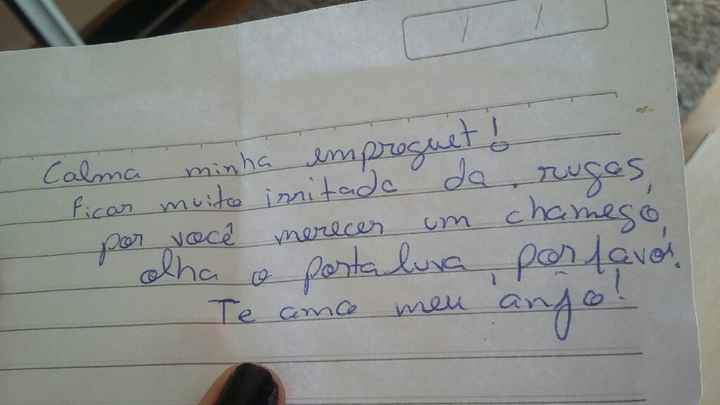 Calma minha empreguet!
ficar muito irritada da rugas,
por você merecer um chamego,
olha o porta luva, por favor.
Te amo meu anjo!